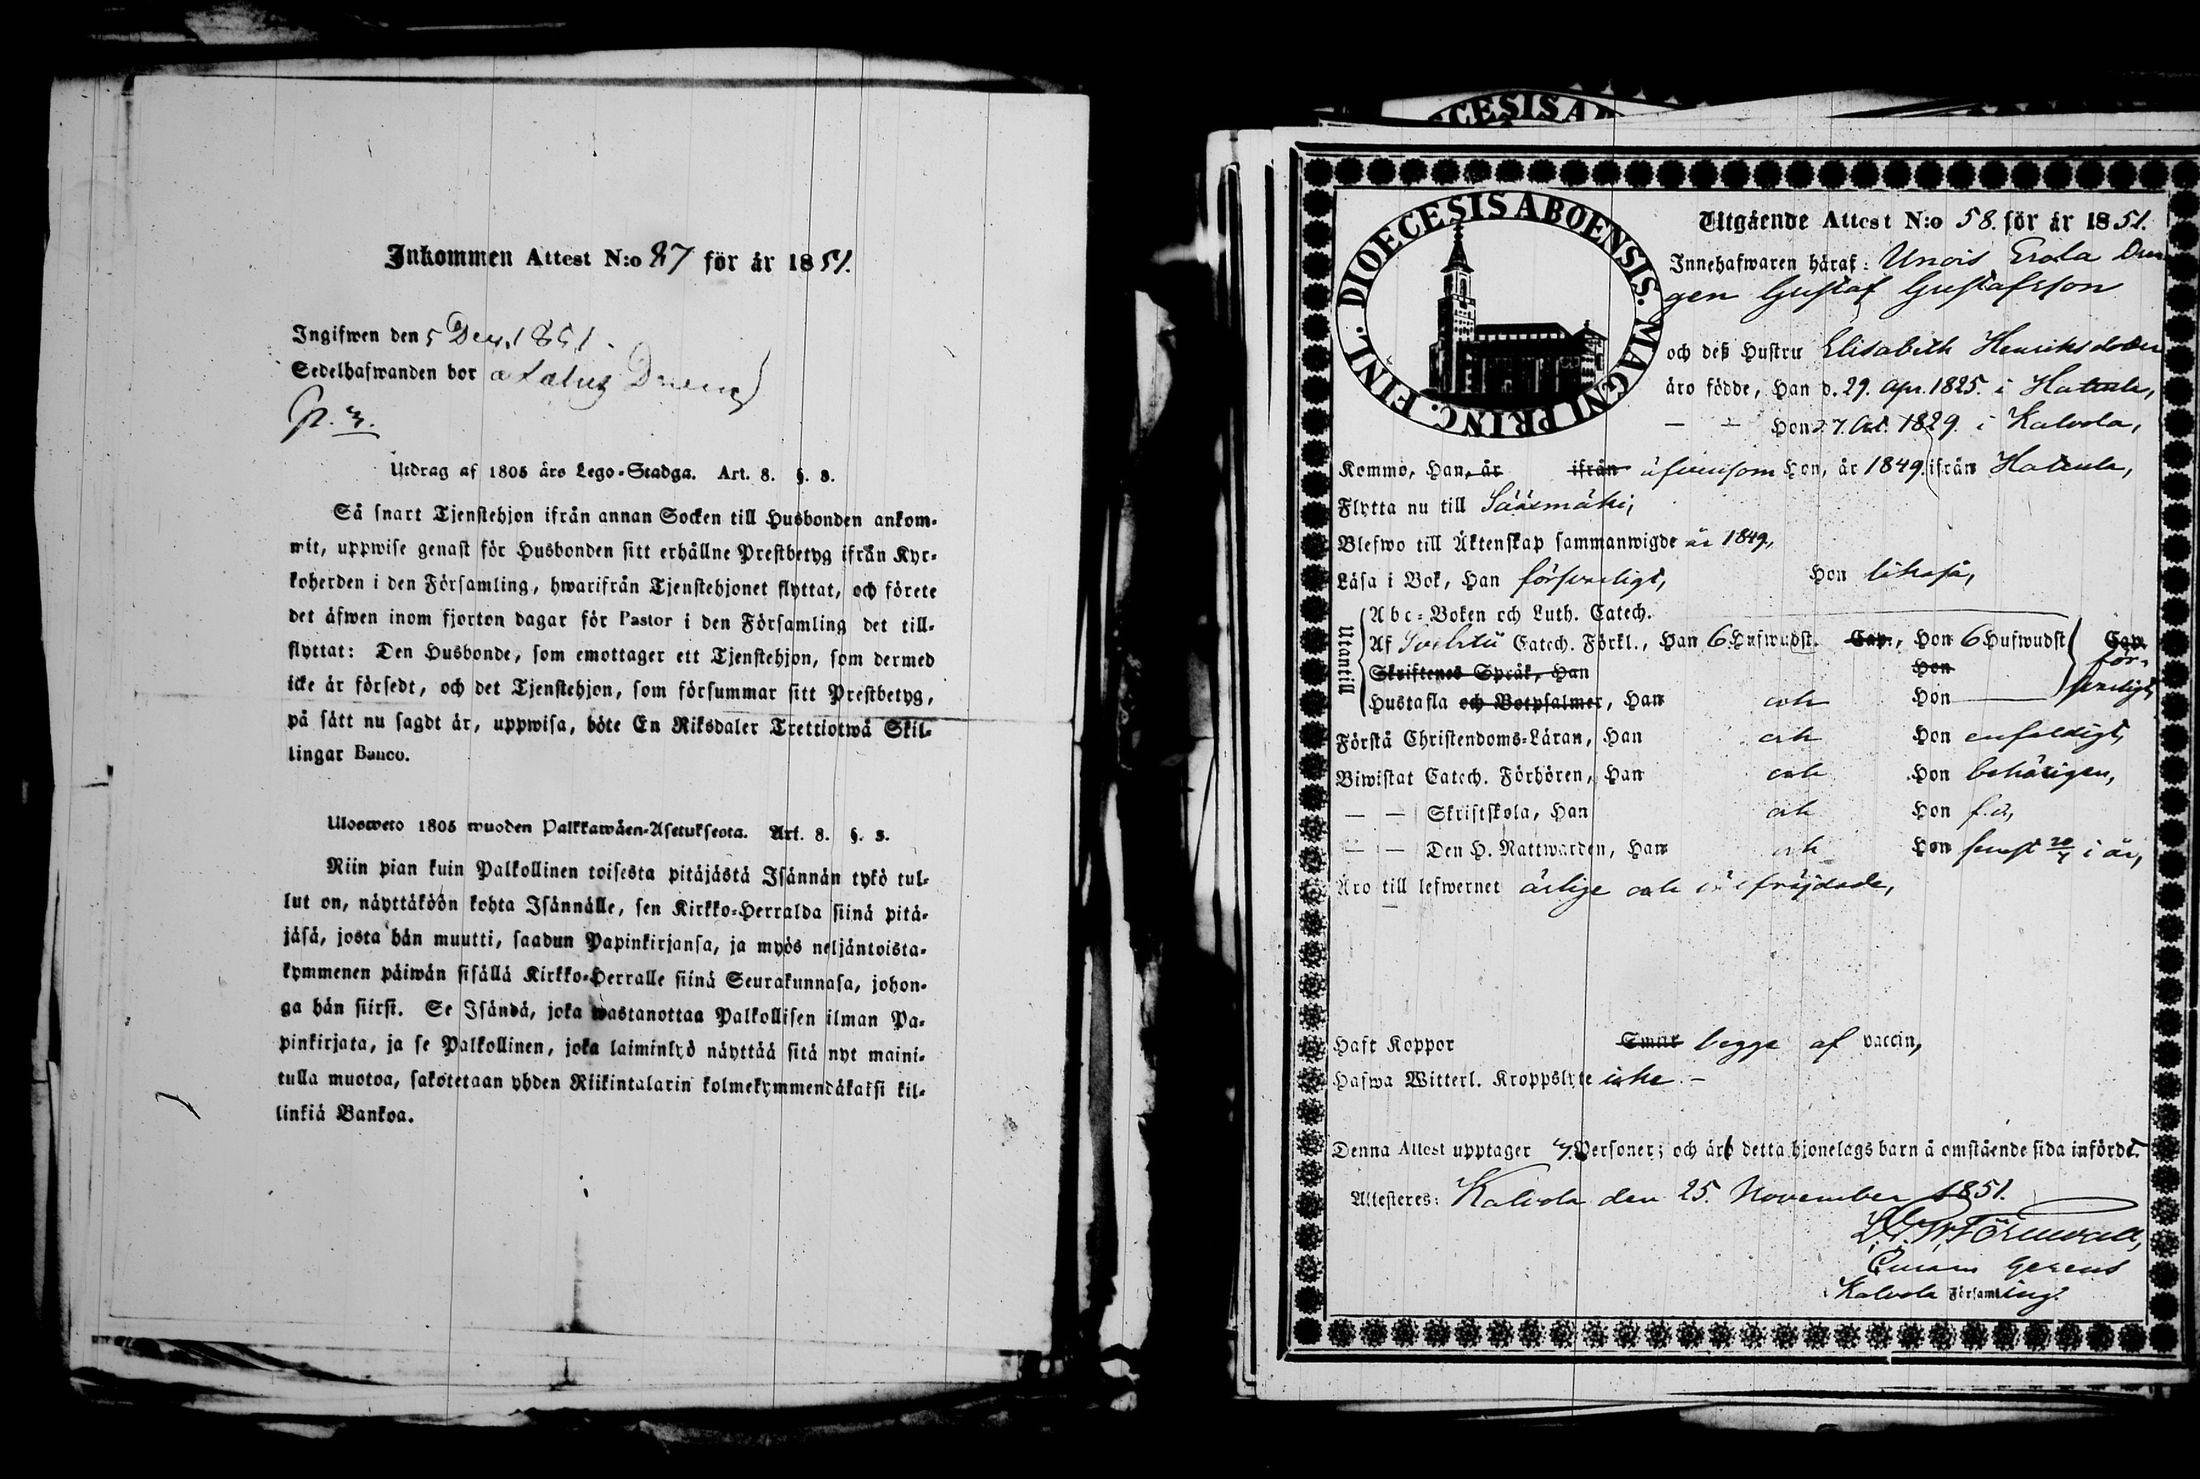 Inkommen Attest N:o 87 för år 1851.
Ingifwen den 5 Dec. 1851.
Sedelhafwanden bor
Utdrag af 1805 års Lego-Stadga. Art. 8. §. 3.
Så snart Tjenstehjon ifrån annan Socken till Husbonden ankom-
mit, uppwise genast för Husbonden sitt erhållne Prestbetyg ifrån Kyr-
koherden i den Församling, hwarifrån Tjenstehjonet flyttat, och förete
det äfwen inom fjorton dagar för Pastor i den Församling det till-
flyttat: Den Husbonde, som emottager ett Tjenstehjon, som dermed
icke är försedt, och det Tjenstehjon, som försummar sitt Prestbetyg,
på sätt nu sagdt är, uppwisa, böte En Riksdaler Trettiotwå Skil-
lingar Banco.
Ulosweto 1805 wuoden Palkkawäen-Asetuksesta. Art. 8. §. 3.
Niin pian kuin Palkollinen toisesta pitäjästä Isännän tykö tul-
lut on, näyttäköön kohta Isännälle, sen Kirkko-Herralda siinä pitä-
jäsä, josta hän muutti, saadun Papinkirjansa, ja myös neljäntoista-
kymmenen päiwän sisällä Kirkko-Herralle siinä Seurakunnasa, johon-
ga hän siirst. Se Isändä, joka wastanottaa Palkollisen ilman Pa-
pinkirjata, ja se Palkollinen, joka laiminlyö näyttää sitä nyt maini-
tulla muotoa, sakotetaan yhden Riikintalarin kolmekymmendäkaksi kil-
linkiä Bankoa.
DIOECESIS ABOENSIS. MAGNI PRINC. FINL.
Utgående Attest N:o 58. för år 1851.
Innehafwaren häraf: Unois Erola Dren
gen Gustaf Gustafsson
och deß Hustru Elisabeth Henriksdotter
äro födde, Han d. 29. Apr. 1825. i Hattula,
— — Hon d. 7. Oct. 1829. i Kalvola,
Kommo, Han, år ifrån äfvensom Hon, år 1849. ifrån Hattula,
Flytta nu till Sääxmäki,
Blefwo till Äktenskap sammanwigde år 1849,
Läsa i Bok, Han försvarligt, Hon likaså,
Utantill
Abc-Boken och Luth. Catech.
Af Svebilii Catech. Förkl., Han 6 Hufwudst. Cap., Hon 6 Hufwudst Cap.
Skriftenes Språk, Han Hon för-
Hustafla och Botpsalmer, Han och Hon svarligt,
Förstå Christendoms-Läran, Han och Hon enfaldigt,
Biwistat Catech. Förhören, Han och Hon behörigen,
— — Skriftskola, Han och Hon f. ö,
— — Den H. Nattwarden, Han och Hon senast 20/4 i år,
Äro till lefwernet ärlige och frejdade,
Haft Koppor Smitt begge af vaccin,
Hafwa Witterl. Kroppslyte icke. —
Denna Attest upptager Personer; och äro detta hjonelags barn å omstående sida införde.
Attesteres: Kalvola den 25. November 1851.
Törnwall,
gerens
i Kalvola Församling.